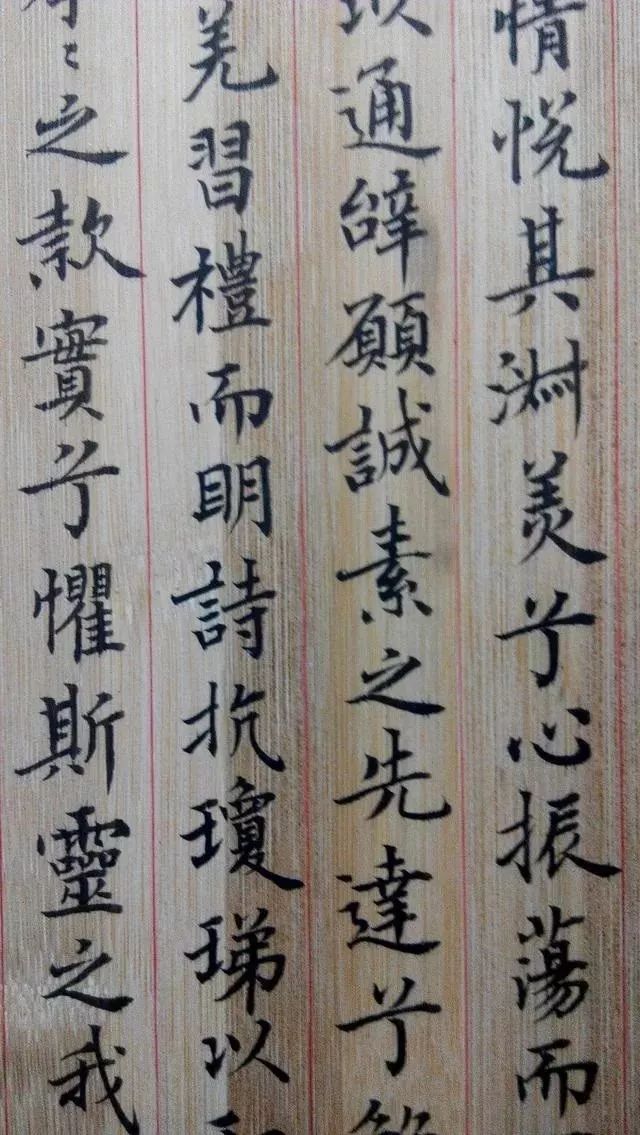 情悅其淋美兮心振蕩而
以通辭願誠素之先達兮
羌習禮而明詩抗瓊珶以
之款實兮懼斯靈之我